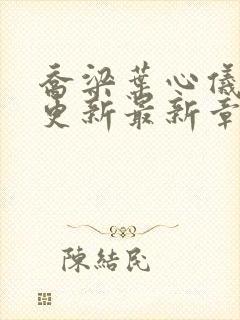 喬梁葉心儀
更新最新章
陳結民